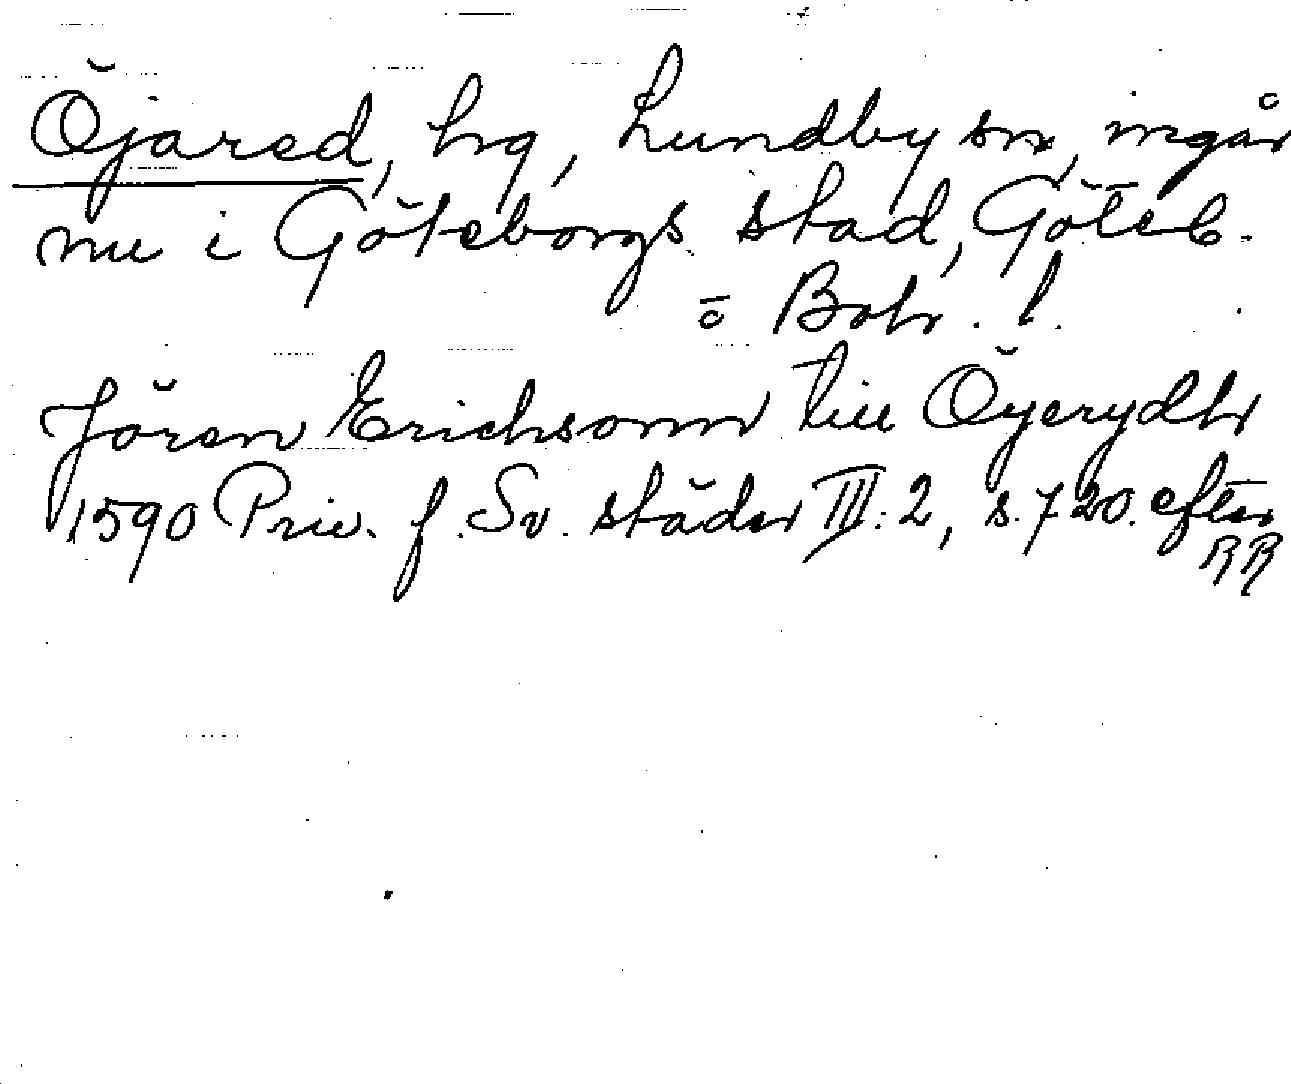 Öjared, hg, Lundby sn, ingår
nu i Göteborgs stad, Göteb.
o Boh. l.
Jören Erichsonn till Öyerydh
1590 Priv. f. Sv. städer III:2, s. 720. efter
RR